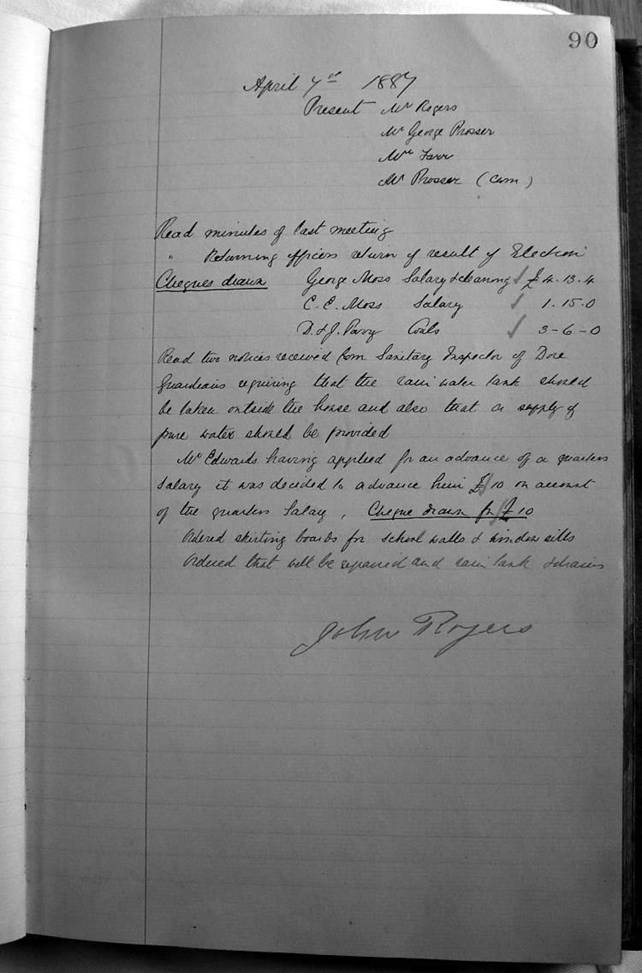 90
April 7th 1887
Present Mr Rogers
Mr George Prosser
Mr Farr
Mr Prosser (Cwm)
Read minutes of last meeting
" Returning officers return of result of Election
Cheques drawn George Moss Salary & cleaning £4-13-4
C. E. Moss Salary 1-15-0
D. & J. Parry Coals 3-6-0
Read two notices received from Sanitary Inspector of Dore
Guardians requiring that the rain water tank should
be taken outside the house and also that a supply of
pure water should be provided
Mr Edwards having applied for an advance of a quarters
Salary it was decided to advance him £10 on account
of the quarters Salary, Cheque drawn for £10
Ordered skirting boards for school walls & window sills
Ordered that well be repaired and rain tank & drains
John Rogers